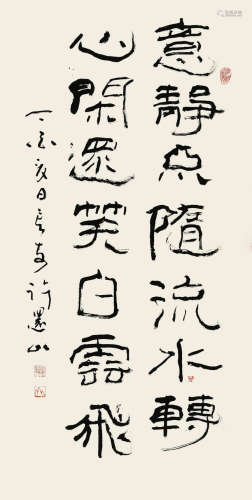 意靜隨流水轉
心閑還笑白雲飛
丁亥日許山